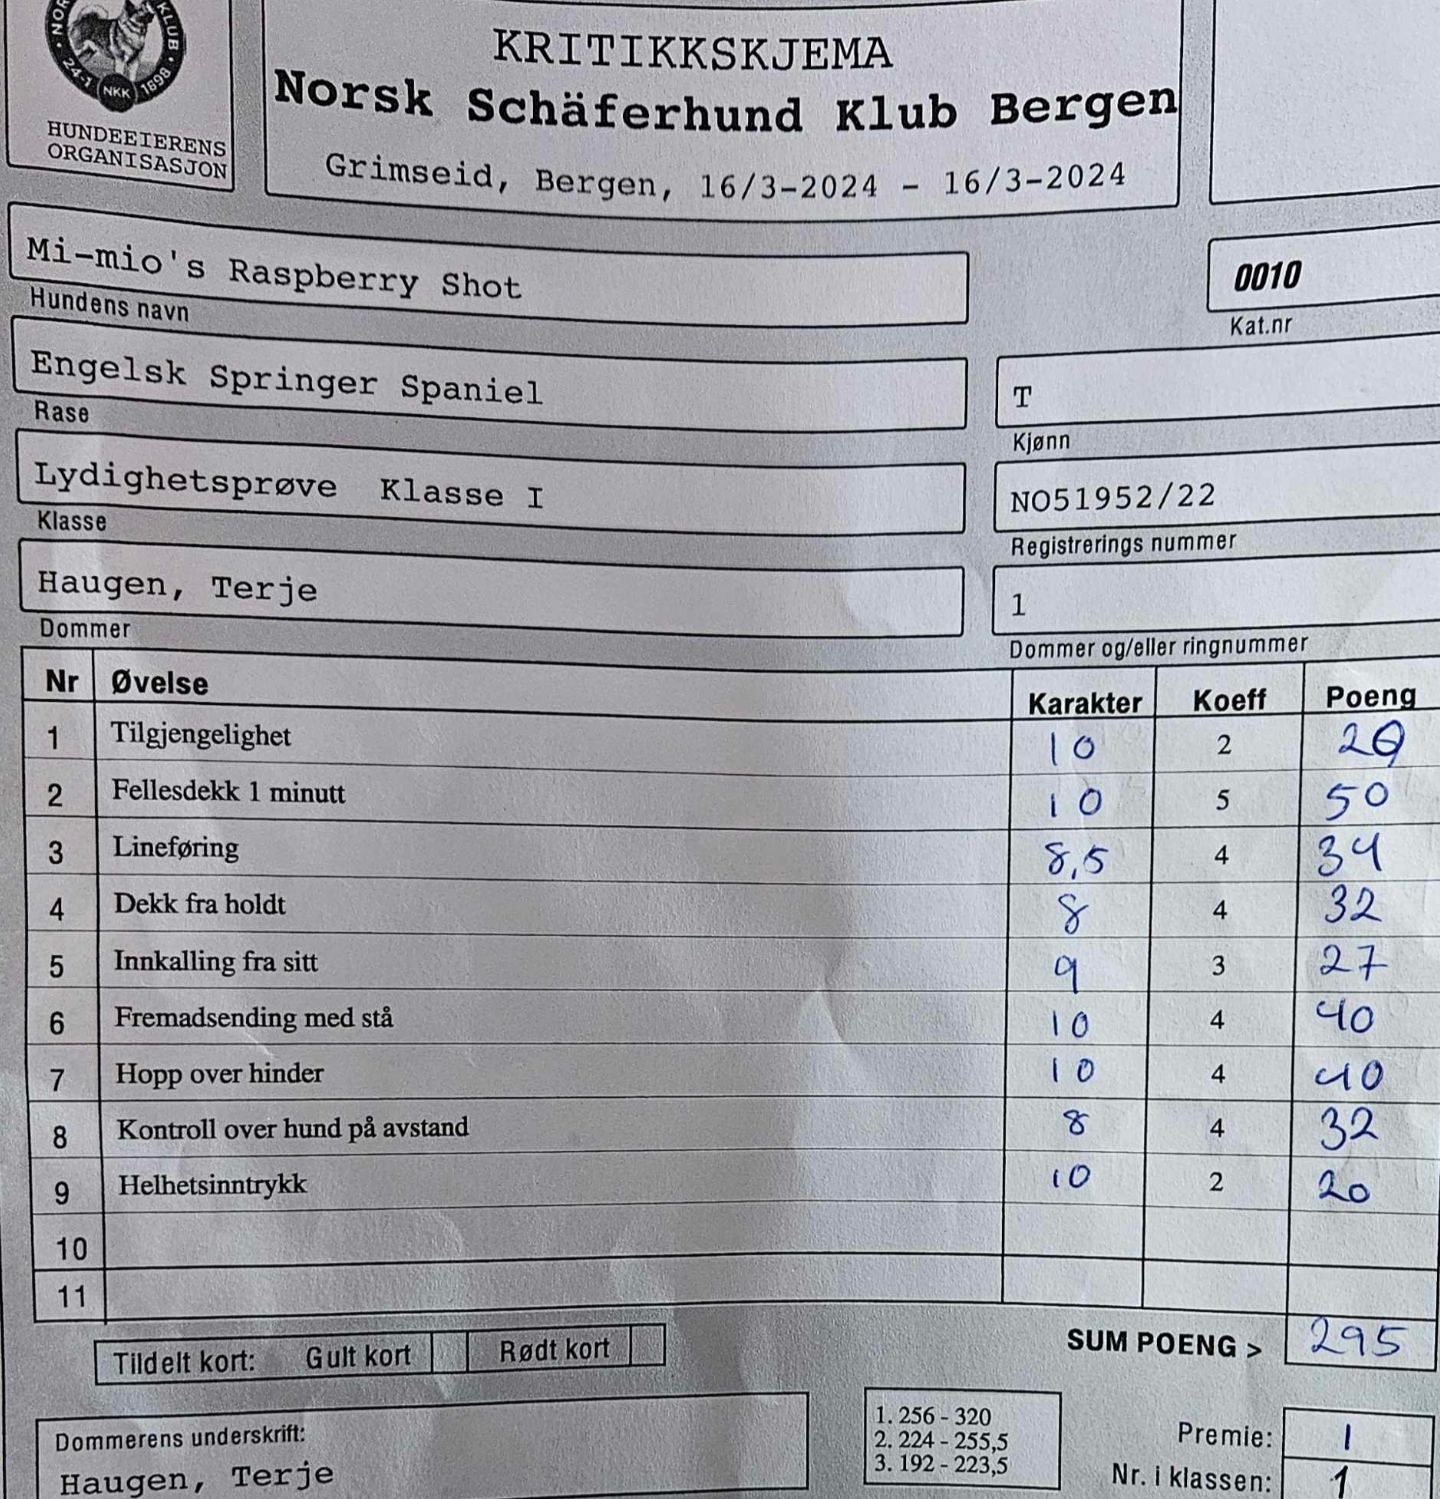 NOR KLUB
24-1 NKK 1898
HUNDEEIERENS
ORGANISASJON
KRITIKKSKJEMA
Norsk Schäferhund Klub Bergen
Grimseid, Bergen, 16/3-2024 - 16/3-2024
Mi-mio's Raspberry Shot
Hundens navn
0010
Kat.nr
Engelsk Springer Spaniel
Rase
T
Kjønn
Lydighetsprøve Klasse I
Klasse
NO51952/22
Registrerings nummer
Haugen, Terje
Dommer
1
Dommer og/eller ringnummer
Nr Øvelse Karakter Koeff Poeng
1 Tilgjengelighet 10 2 20
2 Fellesdekk 1 minutt 10 5 50
3 Lineføring 8,5 4 34
4 Dekk fra holdt 8 4 32
5 Innkalling fra sitt 9 3 27
6 Fremadsending med stå 10 4 40
7 Hopp over hinder 10 4 40
8 Kontroll over hund på avstand 8 4 32
9 Helhetsinntrykk 10 2 20
10
11
SUM POENG > 295
Tildelt kort: Gult kort Rødt kort
Dommerens underskrift:
Haugen, Terje
1. 256 - 320
2. 224 - 255,5
3. 192 - 223,5
Premie: 1
Nr. i klassen: 1